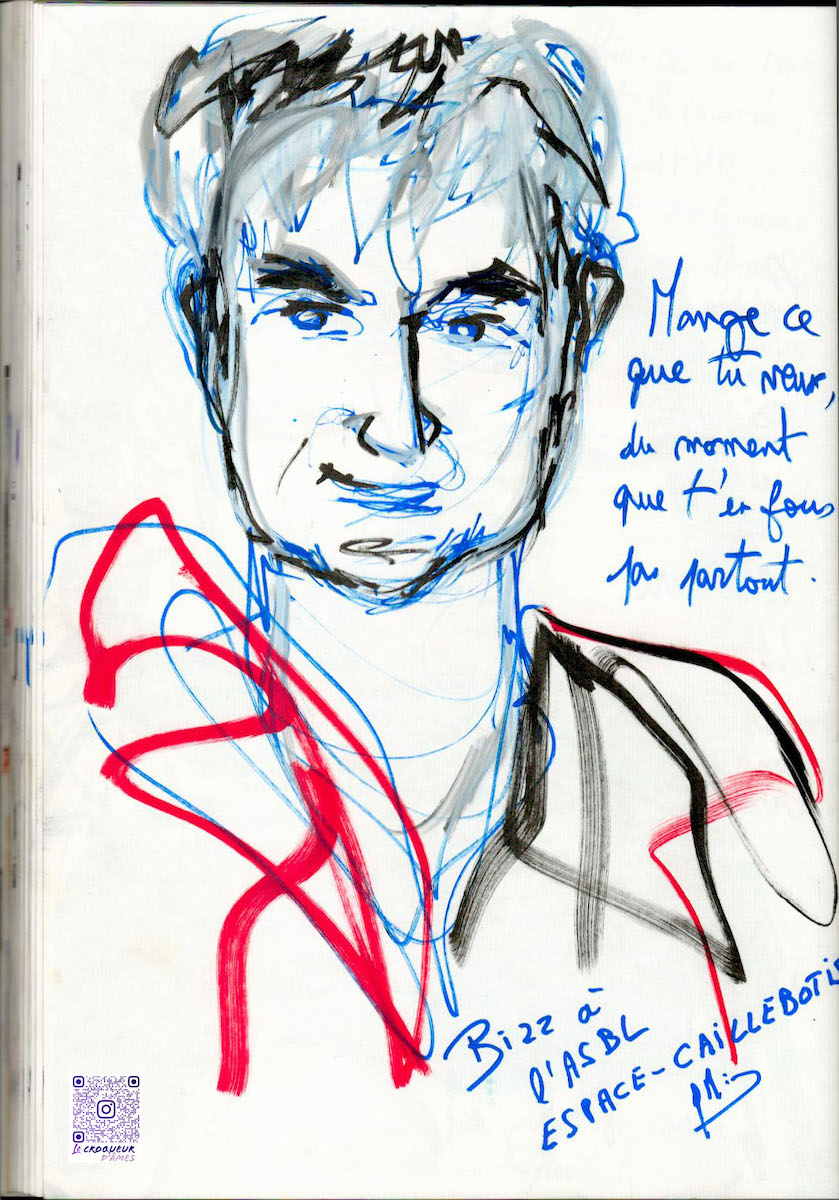 Mange ce
que tu veux,
du moment
que t'en fous
pas partout.
Bizz à
l'ASBL
ESPACE-CAILLEBOTIS
Le CROQUEUR
D'ÂMES